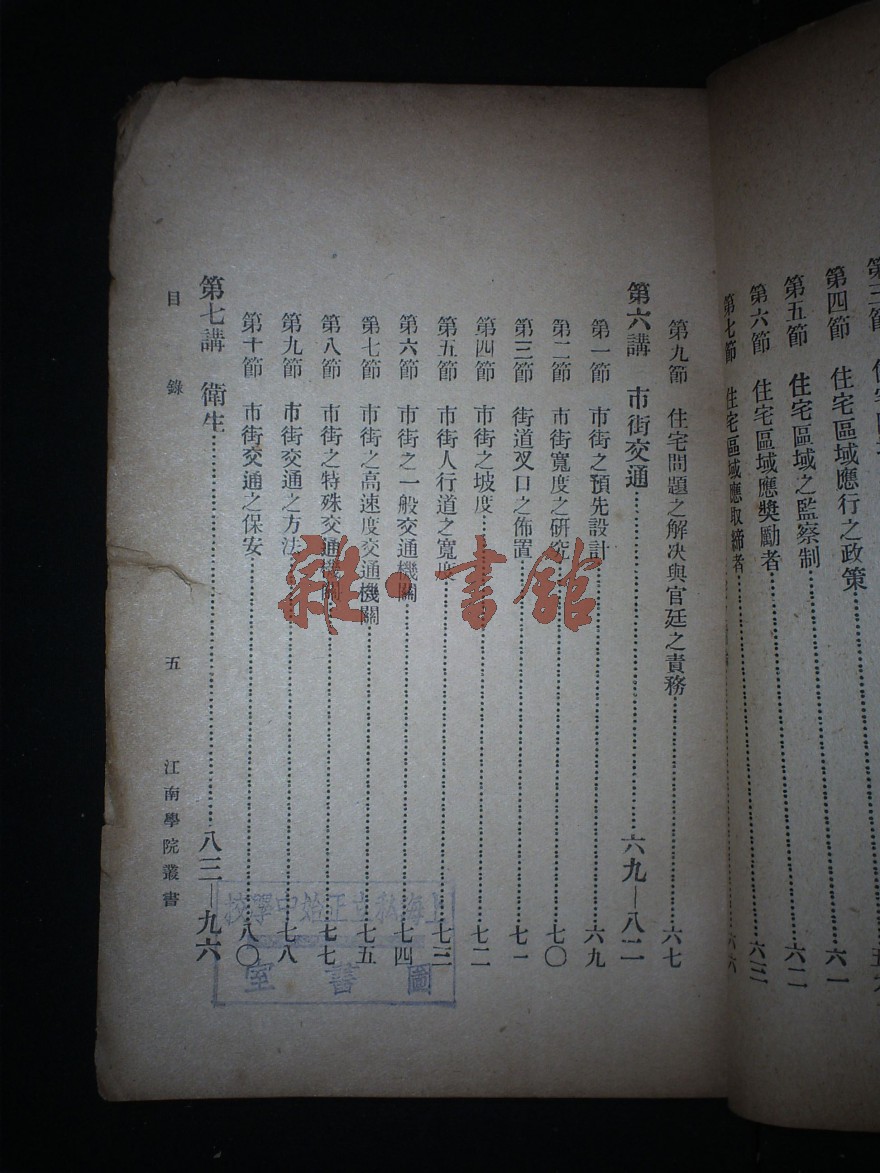 第四節　住宅區域應行之政策……六一
第五節　住宅區域之監察制……六二
第六節　住宅區域應獎勵者……六三
第七節　住宅區域應取締者……六六
第九節　住宅問題之解決與官廷之責務……六七
第六講　市街交通……六九—八二
第一節　市街之預先設計……六九
第二節　市街寬度之研究……七〇
第三節　街道叉口之佈置……七一
第四節　市街之坡度……七二
第五節　市街人行道之寬度……七三
第六節　市街之一般交通機關……七四
第七節　市街之高速度交通機關……七五
第八節　市街之特殊交通機關……七七
第九節　市街交通之方法……七八
第十節　市街交通之保安……八〇
第七講　衛生……八三—九六
目錄　五　江南學院叢書
雜·書館
上海私立正始中學校
圖書室